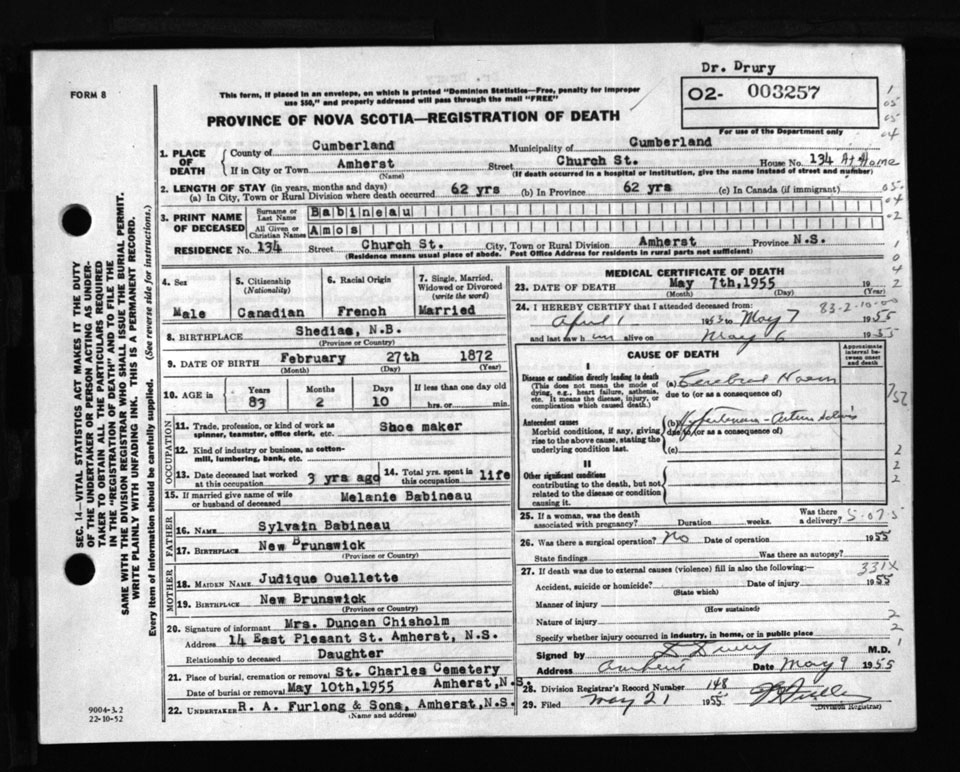 Dr. Drury
FORM 8
This form, if placed in an envelope, on which is printed "Dominion Statistics—Free, penalty for improper
use $50," and properly addressed will pass through the mail "FREE"
O2- 003257
For use of the Department only
PROVINCE OF NOVA SCOTIA—REGISTRATION OF DEATH
1. PLACE OF DEATH { County of Cumberland Municipality of Cumberland
If in City or Town Amherst Street Church St. House No. 134 At Home
(Name) (If death occurred in a hospital or institution, give the name instead of street and number)
2. LENGTH OF STAY (in years, months and days)
(a) In City, Town or Rural Division where death occurred 62 yrs (b) In Province 62 yrs (c) In Canada (if immigrant)
3. PRINT NAME OF DECEASED { Surname or Last Name Babineau
All Given or Christian Names Amos
RESIDENCE No. 134 Street Church St. City, Town or Rural Division Amherst Province N.S.
(Residence means usual place of abode. Post Office Address for residents in rural parts not sufficient)
4. Sex Male
5. Citizenship (Nationality) Canadian
6. Racial Origin French
7. Single, Married, Widowed or Divorced (write the word) Married
8. BIRTHPLACE Shedias, N.B.
(Province or Country)
9. DATE OF BIRTH February 27th 1872
(Month) (Day) (Year)
10. AGE in { Years 83 Months 2 Days 10 If less than one day old hrs. or min.
OCCUPATION
11. Trade, profession, or kind of work as spinner, teamster, office clerk, etc. Shoe maker
12. Kind of industry or business, as cotton-mill, lumbering, bank, etc.
13. Date deceased last worked at this occupation 3 yrs ago 14. Total yrs. spent in this occupation life
15. If married give name of wife or husband of deceased Melanie Babineau
FATHER
16. NAME Sylvain Babineau
17. BIRTHPLACE New Brunswick
(Province or Country)
MOTHER
18. MAIDEN NAME Judique Ouellette
19. BIRTHPLACE New Brunswick
(Province or Country)
20. Signature of informant Mrs. Duncan Chisholm
Address 14 East Plesant St. Amherst, N.S.
Relationship to deceased Daughter
21. Place of burial, cremation or removal St. Charles Cemetery
Date of burial or removal May 10th, 1955 Amherst, N.S.
22. UNDERTAKER R. A. Furlong & Sons, Amherst, N.S.
(Name and address)
MEDICAL CERTIFICATE OF DEATH
23. DATE OF DEATH May 7th, 1955 19
(Month) (Day) (Year)
24. I HEREBY CERTIFY that I attended deceased from: 83-2-10-00
April 1 1953 to May 7 1955
and last saw him alive on May 6 1955
CAUSE OF DEATH
Approximate interval between onset and death
I
Disease or condition directly leading to death
(This does not mean the mode of dying, e.g., heart failure, asthenia, etc. It means the disease, injury, or complication which caused death.)
(a) Cerebral
due to (or as a consequence of)
Antecedent causes
Morbid conditions, if any, giving rise to the above cause, stating the underlying condition last.
(b) Hypertension
due to (or as a consequence of)
(c)
II
Other significant conditions
contributing to the death, but not related to the disease or condition causing it.
25. If a woman, was the death associated with pregnancy? Duration weeks. Was there a delivery? 5-07-5
26. Was there a surgical operation? No Date of operation 1955
State findings Was there an autopsy?
27. If death was due to external causes (violence) fill in also the following: 331X
Accident, suicide or homicide? Date of injury 1955
(State which)
Manner of injury
(How sustained)
Nature of injury
Specify whether injury occurred in industry, in home, or in public place
Signed by D Drury M.D.
Address Amherst Date May 9 1955
28. Division Registrar's Record Number 148
29. Filed May 21 1955
(Division Registrar)
SEC. 14—VITAL STATISTICS ACT MAKES IT THE DUTY
OF THE UNDERTAKER OR PERSON ACTING AS UNDER-
TAKER TO OBTAIN ALL THE PARTICULARS REQUIRED
IN THE "REGISTRATION OF DEATH" AND TO FILE THE
SAME WITH THE DIVISION REGISTRAR WHO SHALL ISSUE THE BURIAL PERMIT.
WRITE PLAINLY WITH UNFADING INK. THIS IS A PERMANENT RECORD.
Every item of information should be carefully supplied. (See reverse side for instructions.)
9004-3.2
22-10-52